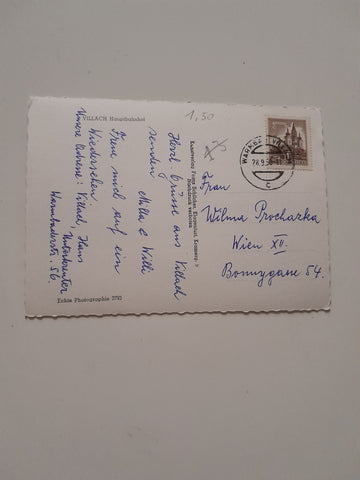 VILLACH Hauptbahnhof
1,50
Herzl. Grüsse aus Villach
senden Milla & Willi
Freue mich auf ein
Wiedersehen.
Unsere Adresse: Villach, Haus
Unterkreuter
Warmbaderstr. 56.
Echte Photographie
Kunstverlag Franz Schilcher, Klagenfurt,
Nachdruck verboten
WARMBAD VILLACH
28.9.5
C
Frau
Wilma Prochazka
Wien XII.
Bonnygasse 54.